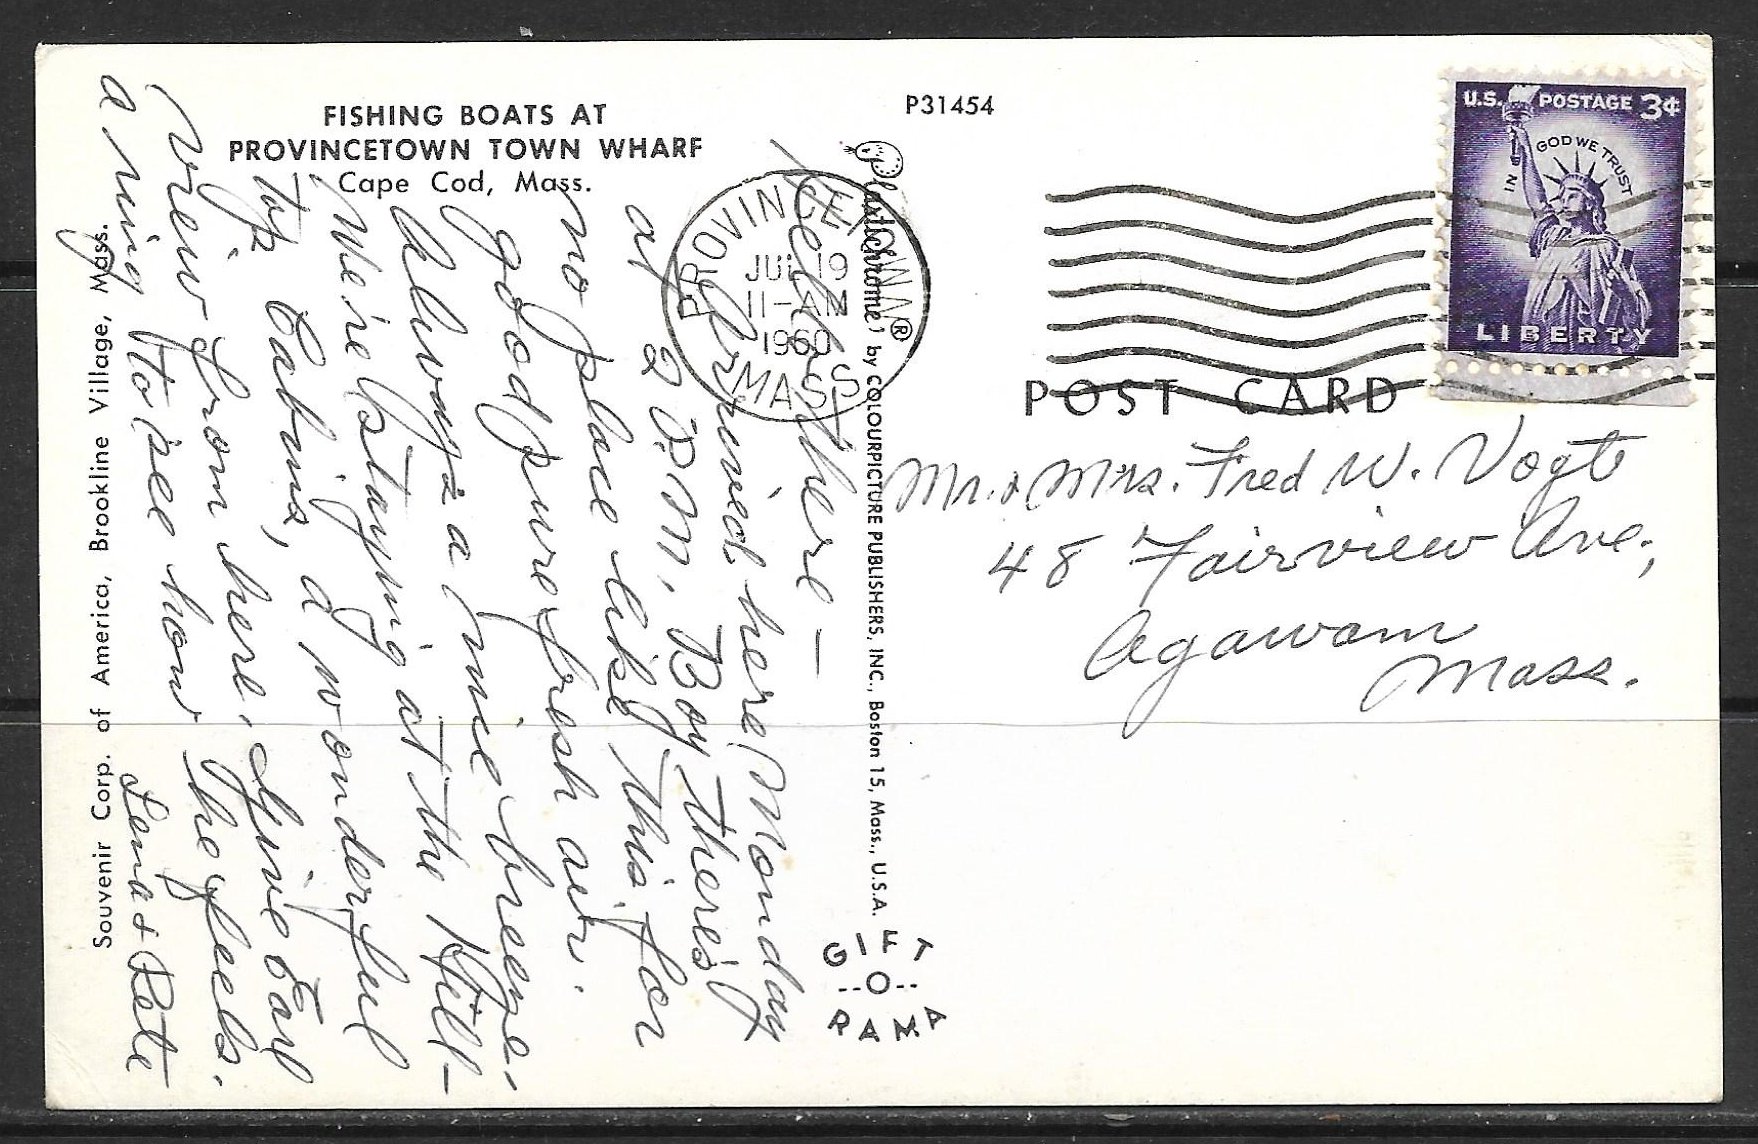 FISHING BOATS AT
PROVINCETOWN TOWN WHARF
Cape Cod, Mass.
P31454
U.S. POSTAGE 3¢
IN GOD WE TRUST
LIBERTY
PROVINCETOWN
JUL 19
11-AM
1960
MASS
POST CARD
Mr. & Mrs. Fred W. Vogt
48 Fairview Ave.,
Agawam
Mass.
Hello there —
Arrived here Monday
at 2 P.M. Boy there's
no place like this for
good pure fresh air.
Always a nice breeze.
We're staying at the Hill-
top Cabins, a wonderful
view from here. Give Earl
a ring to see how he feels.
Lena & Pete
Plastichrome® by COLOURPICTURE PUBLISHERS, INC., Boston 15, Mass., U.S.A.
Souvenir Corp. of America, Brookline Village, Mass.
GIFT
--O--
RAMA